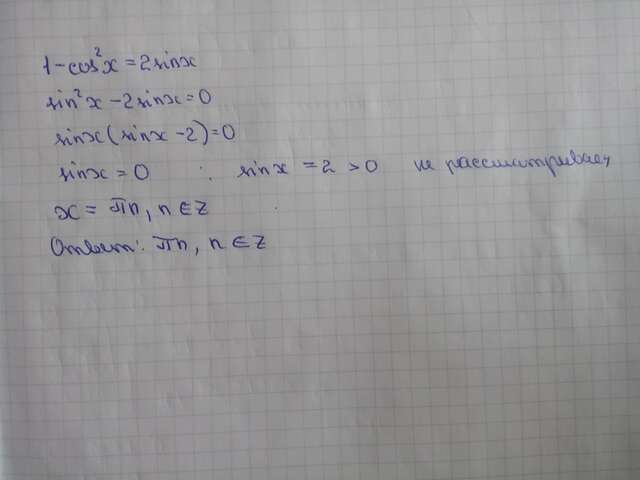 1-cos²x=2sinx
sin²x-2sinx=0
sinx(sinx-2)=0
sinx=0 : sinx=2>0 не рассматривает
x=πn, n∈Z
Ответ: πn, n∈Z